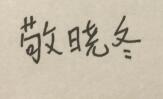 敬晓冬